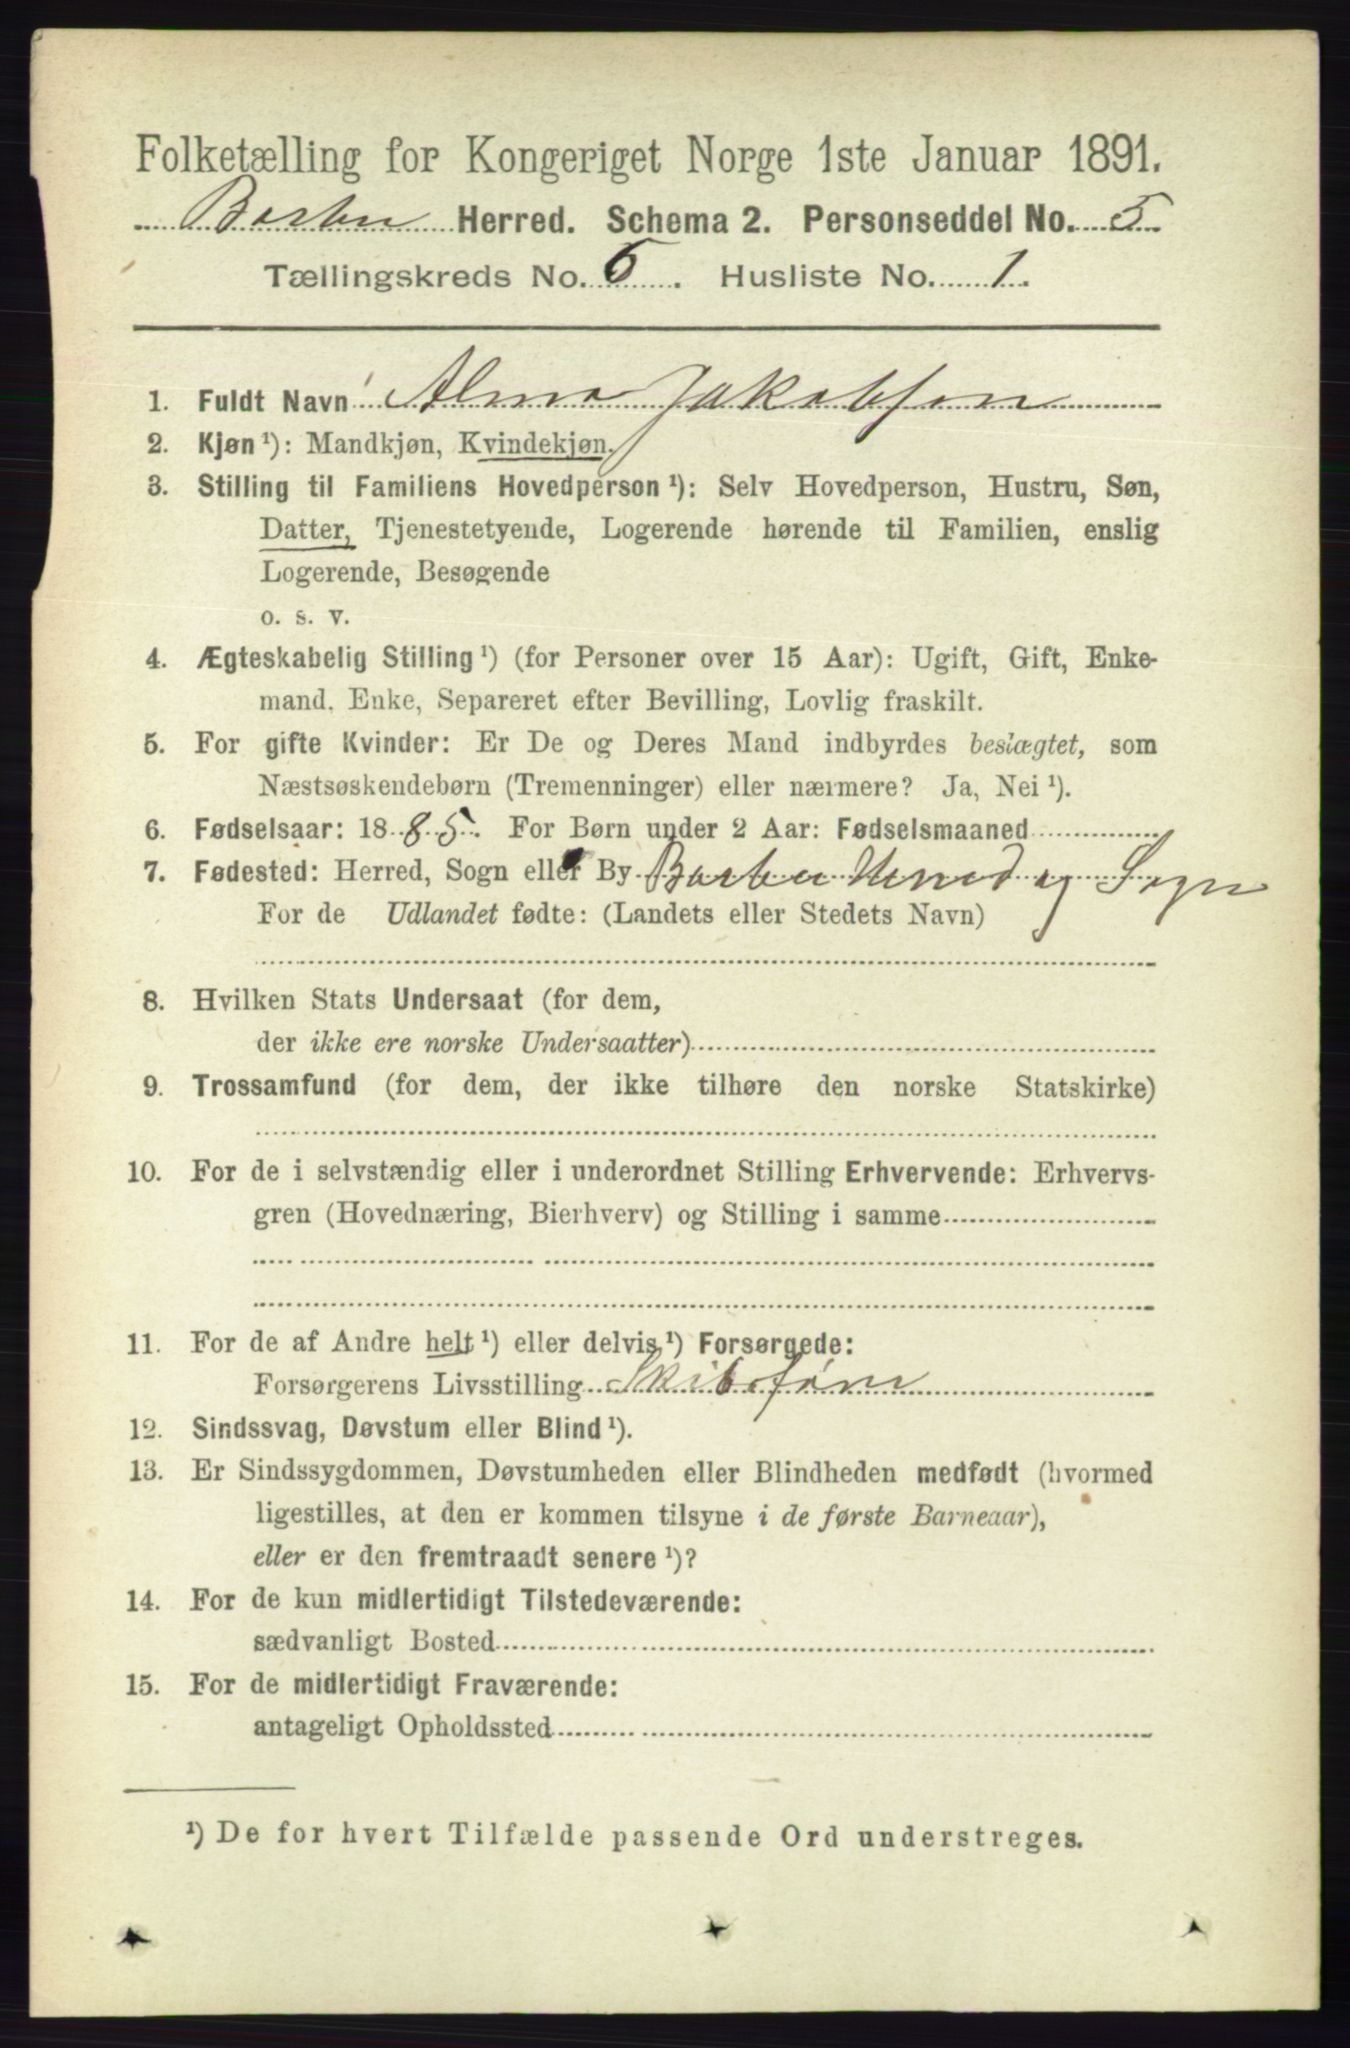 Folketælling for Kongeriget Norge 1ste Januar 1891.
Barbu Herred. Schema 2. Personseddel No. 5.
Tællingskreds No. 6. Husliste No. 1.
1. Fuldt Navn Alma Jakobsen
2. Kjøn ¹): Mandkjøn, Kvindekjøn.
3. Stilling til Familiens Hovedperson ¹): Selv Hovedperson, Hustru, Søn,
Datter, Tjenestetyende, Logerende hørende til Familien, enslig
Logerende, Besøgende
o. s. v.
4. Ægteskabelig Stilling ¹) (for Personer over 15 Aar): Ugift, Gift, Enke-
mand, Enke, Separeret efter Bevilling, Lovlig fraskilt.
5. For gifte Kvinder: Er De og Deres Mand indbyrdes beslægtet, som
Næstsøskendebørn (Tremenninger) eller nærmere? Ja, Nei ¹).
6. Fødselsaar: 1885. For Børn under 2 Aar: Fødselsmaaned
7. Fødested: Herred, Sogn eller By Barbu Herred og Sogn
For de Udlandet fødte: (Landets eller Stedets Navn)
8. Hvilken Stats Undersaat (for dem,
der ikke ere norske Undersaatter)
9. Trossamfund (for dem, der ikke tilhøre den norske Statskirke)
10. For de i selvstændig eller i underordnet Stilling Erhvervende: Erhvervs-
gren (Hovednæring, Bierhverv) og Stilling i samme
11. For de af Andre helt ¹) eller delvis ¹) Forsørgede:
Forsørgerens Livsstilling Skibsfører
12. Sindssvag, Døvstum eller Blind ¹).
13. Er Sindssygdommen, Døvstumheden eller Blindheden medfødt (hvormed
ligestilles, at den er kommen tilsyne i de første Barneaar),
eller er den fremtraadt senere ¹)?
14. For de kun midlertidigt Tilstedeværende:
sædvanligt Bosted
15. For de midlertidigt Fraværende:
antageligt Opholdssted
¹) De for hvert Tilfælde passende Ord understreges.